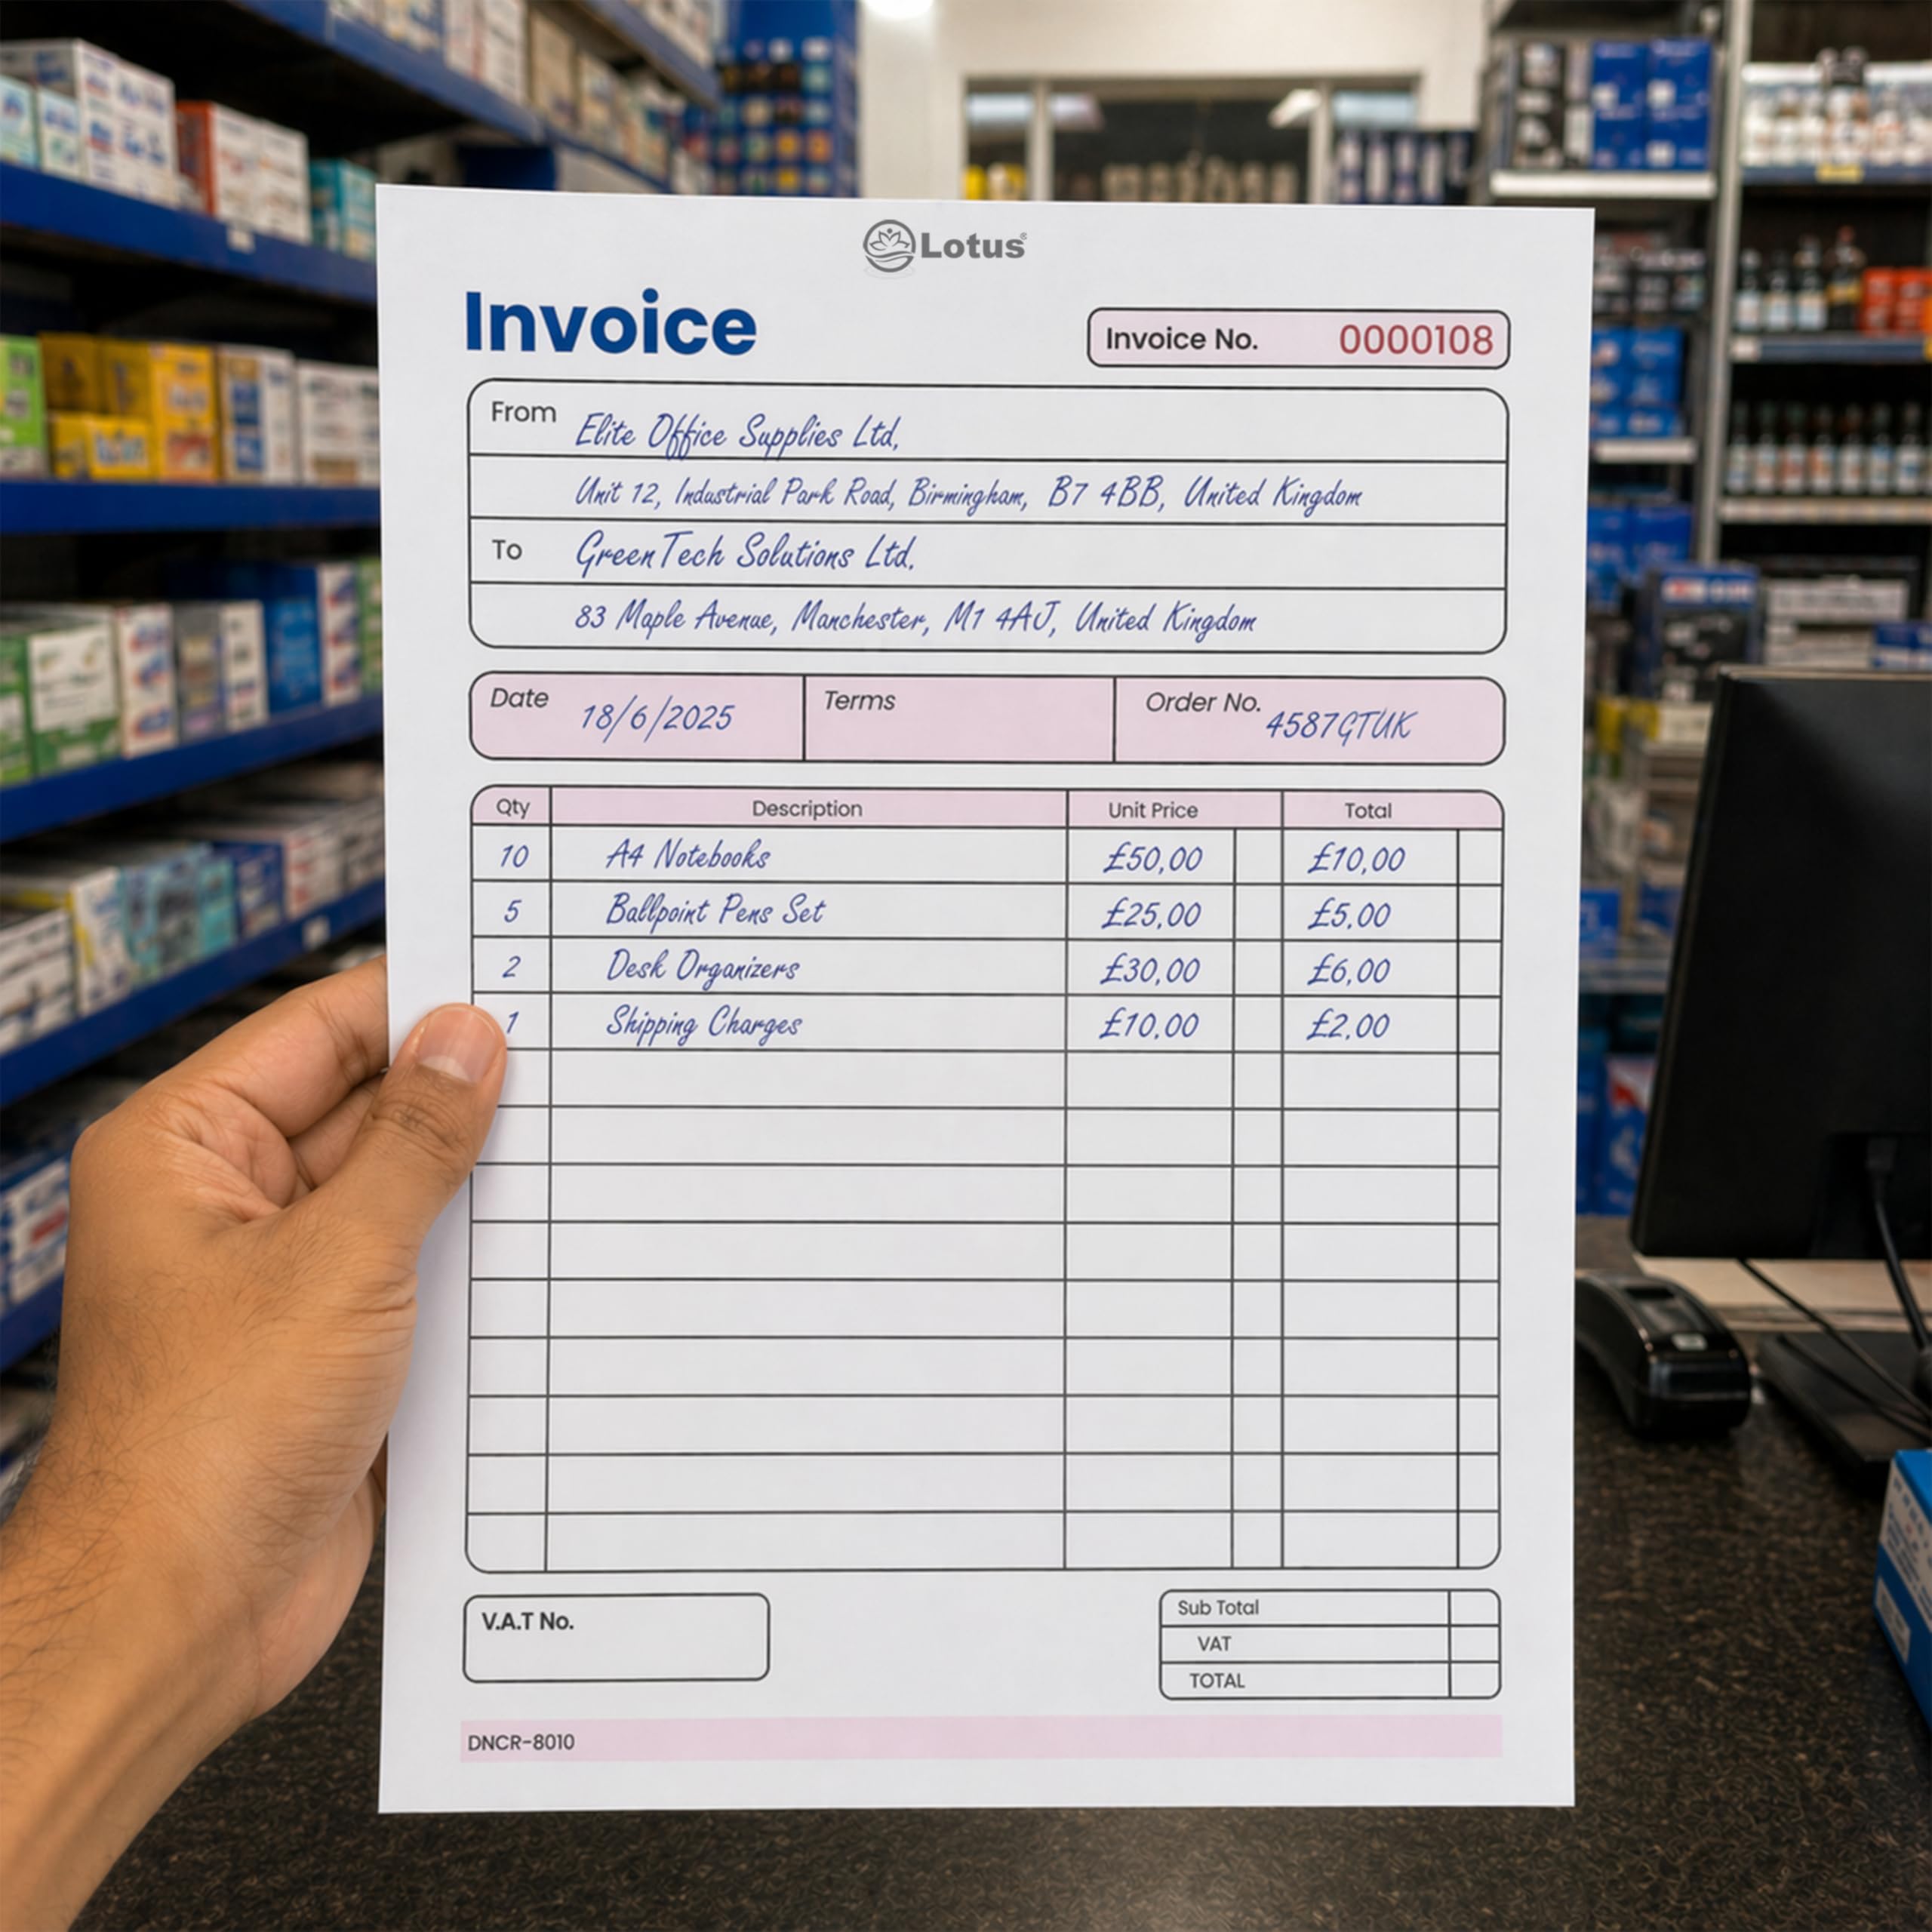 Lotus®
Invoice
Invoice No. 0000108
From Elite Office Supplies Ltd,
Unit 12, Industrial Park Road, Birmingham, B7 4BB, United Kingdom
To GreenTech Solutions Ltd.
83 Maple Avenue, Manchester, M1 4AJ, United Kingdom
Date 18/6/2025 Terms Order No. 4587GTUK
Qty Description Unit Price Total
10 A4 Notebooks £50,00 £10,00
5 Ballpoint Pens Set £25,00 £5,00
2 Desk Organizers £30,00 £6,00
1 Shipping Charges £10,00 £2,00
V.A.T No.
Sub Total
VAT
TOTAL
DNCR-8010